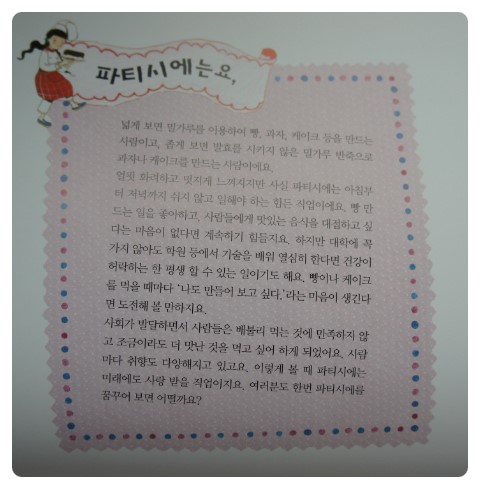 파티시에는요,
넓게 보면 밀가루를 이용하여 빵, 과자, 케이크 등을 만드는
사람이고, 좁게 보면 발효를 시키지 않은 밀가루 반죽으로
과자나 케이크를 만드는 사람이에요.
얼핏 화려하고 멋지게 느껴지지만 사실 파티시에는 아침부
터 저녁까지 쉬지 않고 일해야 하는 힘든 직업이에요. 빵 만
드는 일을 좋아하고, 사람들에게 맛있는 음식을 대접하고 싶
다는 마음이 없다면 계속하기 힘들지요. 하지만 대학에 꼭
가지 않아도 학원 등에서 기술을 배워 열심히 한다면 건강이
허락하는 한 평생 할 수 있는 일이기도 해요. 빵이나 케이크
를 먹을 때마다 ‘나도 만들어 보고 싶다.’라는 마음이 생긴다
면 도전해 볼 만하지요.
사회가 발달하면서 사람들은 배불리 먹는 것에 만족하지 않
고 조금이라도 더 맛난 것을 먹고 싶어 하게 되었어요. 사람
마다 취향도 다양해지고 있고요. 이렇게 볼 때 파티시에는
미래에도 사랑 받을 직업이지요. 여러분도 한번 파티시에를
꿈꾸어 보면 어떨까요?